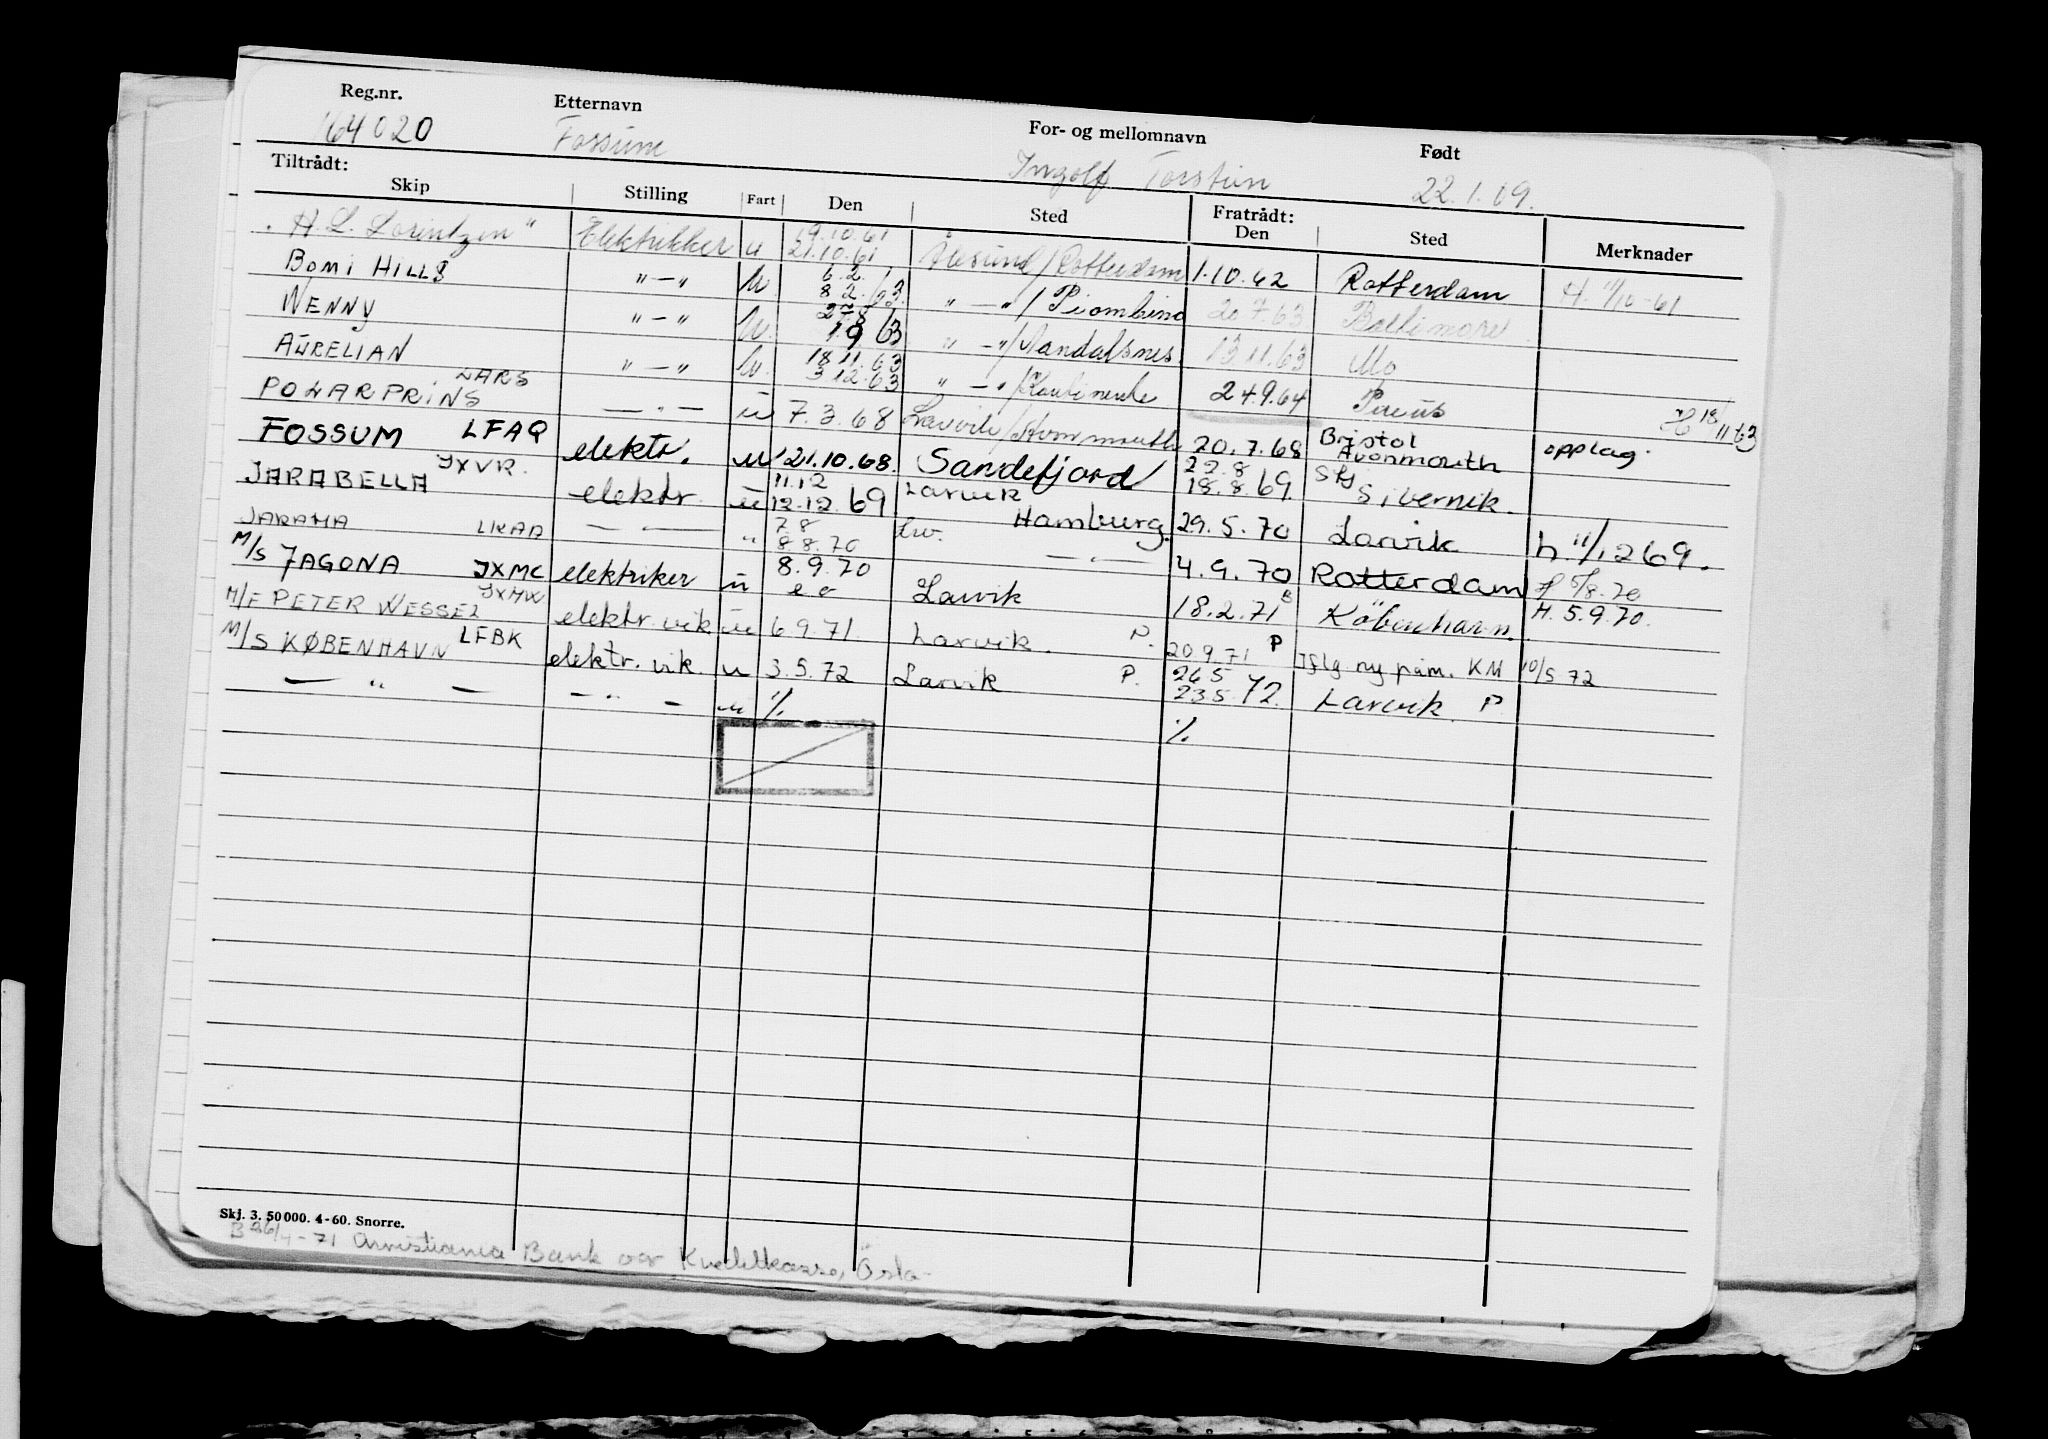 Reg.nr. Etternavn For- og mellomnavn Født
164020 Fossum Ingolf Torstein 22.1.09.
Tiltrådt: Fratrådt:
Skip Stilling Fart Den Sted Den Sted Merknader
"H. L. Lorentzen" Elektrikker u 19.10.61 21.10.61 Ålesund/Rotterdam 1.10.62 Rotterdam H. 11/10-61
BOMI HILLS "—" u 6.2. 8.2.63 "—"/Piombino 20.7.63 Baltimore
WENNY "—" u. 27.8 1.9 63 "—"/Åndalsnes. 13.11.63 Mo
AURELIAN "—" u. 18.11.63 3.12.63 "—"/ 24.9.64 Pireus H 18/11 63
POLARPRINS LARS —"— u 7.3.68 Larvik/Avonmouth 20.7.68 Bristol Avonmouth opplag.
FOSSUM LFAQ elektr. u 21.10.68. Sandefjord 22.8 18.8.69. Sibernik.
JARABELLA JXVR. elektr. u 11.12 12.12.69 Larvik Hamburg. 29.5.70 Larvik h. 11/12 69.
JARAMA LKAD — — " 7.8 8.8.70 Lw. —"— 4.9.70 Rotterdam H 5/8.70
M/S JAGONA JXMC elektriker u 8.9.70 Larvik 18.2.71 B København. H. 5.9.70.
M/F PETER WESSEL JXMW elektr. vik u 6.9.71. Larvik. P. 20.9.71 P Iflg. ny påm. KM 10/5 72
M/S KØBENHAVN LFBK elektr. vik. u 3.5.72 Larvik P. 26.5 23.5.72. Larvik. P
— " — — " — u ·/. ·/.
Skj. 3. 50 000. 4-60. Snorre.
B 26/4-71 Christiania Bank og Kreditkasse, Oslo